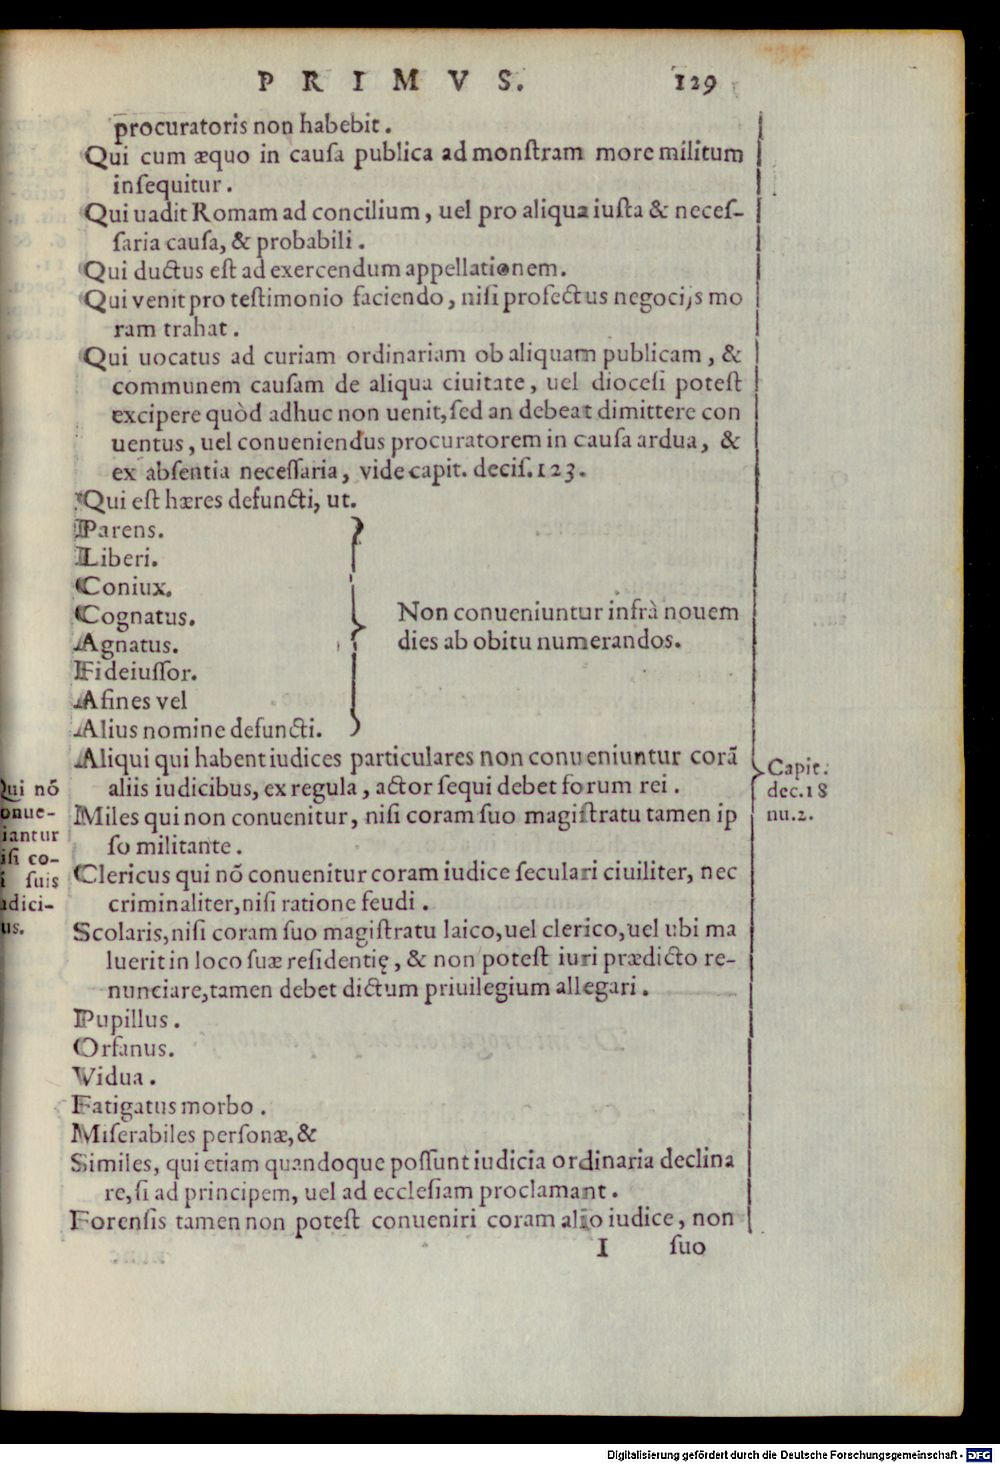 PRIMVS. 129
procuratoris non habebit.
Qui cum æquo in cauſa publica ad monſtram more militum
inſequitur.
Qui uadit Romam ad concilium, uel pro aliqua iuſta & neceſ-
ſaria cauſa, & probabili.
Qui ductus eſt ad exercendum appellationem.
Qui venit pro teſtimonio faciendo, niſi profectus negocijs mo
ram trahat.
Qui uocatus ad curiam ordinariam ob aliquam publicam, &
communem cauſam de aliqua ciuitate, uel dioceſi poteſt
excipere quòd adhuc non uenit, ſed an debeat dimittere con
uentus, uel conueniendus procuratorem in cauſa ardua, &
ex abſentia neceſſaria, vide capit. deciſ. 123.
Qui eſt hæres defuncti, ut.
Parens.
Liberi.
Coniux.
Cognatus.
Agnatus.
Fideiuſſor.
Afines vel
Alius nomine defuncti.
Non conueniuntur infrà nouem
dies ab obitu numerandos.
Aliqui qui habent iudices particulares non conueniuntur corã
aliis iudicibus, ex regula, actor ſequi debet forum rei.
Capit.
dec.18
nu.2.
Miles qui non conuenitur, niſi coram ſuo magiſtratu tamen ip
ſo militante.
Clericus qui nõ conuenitur coram iudice ſeculari ciuiliter, nec
criminaliter, niſi ratione feudi.
Scolaris, niſi coram ſuo magiſtratu laico, uel clerico, uel ubi ma
luerit in loco ſuæ reſidentię, & non poteſt iuri prædicto re-
nunciare, tamen debet dictum priuilegium allegari.
ui nõ
onue-
iantur
iſi co-
i ſuis
dici-
us.
Pupillus.
Orfanus.
Vidua.
Fatigatus morbo.
Miſerabiles perſonæ, &
Similes, qui etiam quandoque poſſunt iudicia ordinaria declina
re, ſi ad principem, uel ad eccleſiam proclamant.
Forenſis tamen non poteſt conueniri coram alio iudice, non
I ſuo
Digitalisierung gefördert durch die Deutsche Forschungsgemeinschaft - DFG